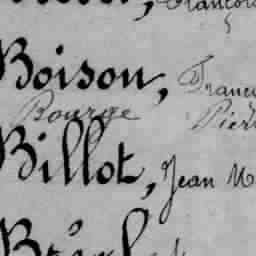 Boison, Franc
Bourge Pier
Billot, Jean M